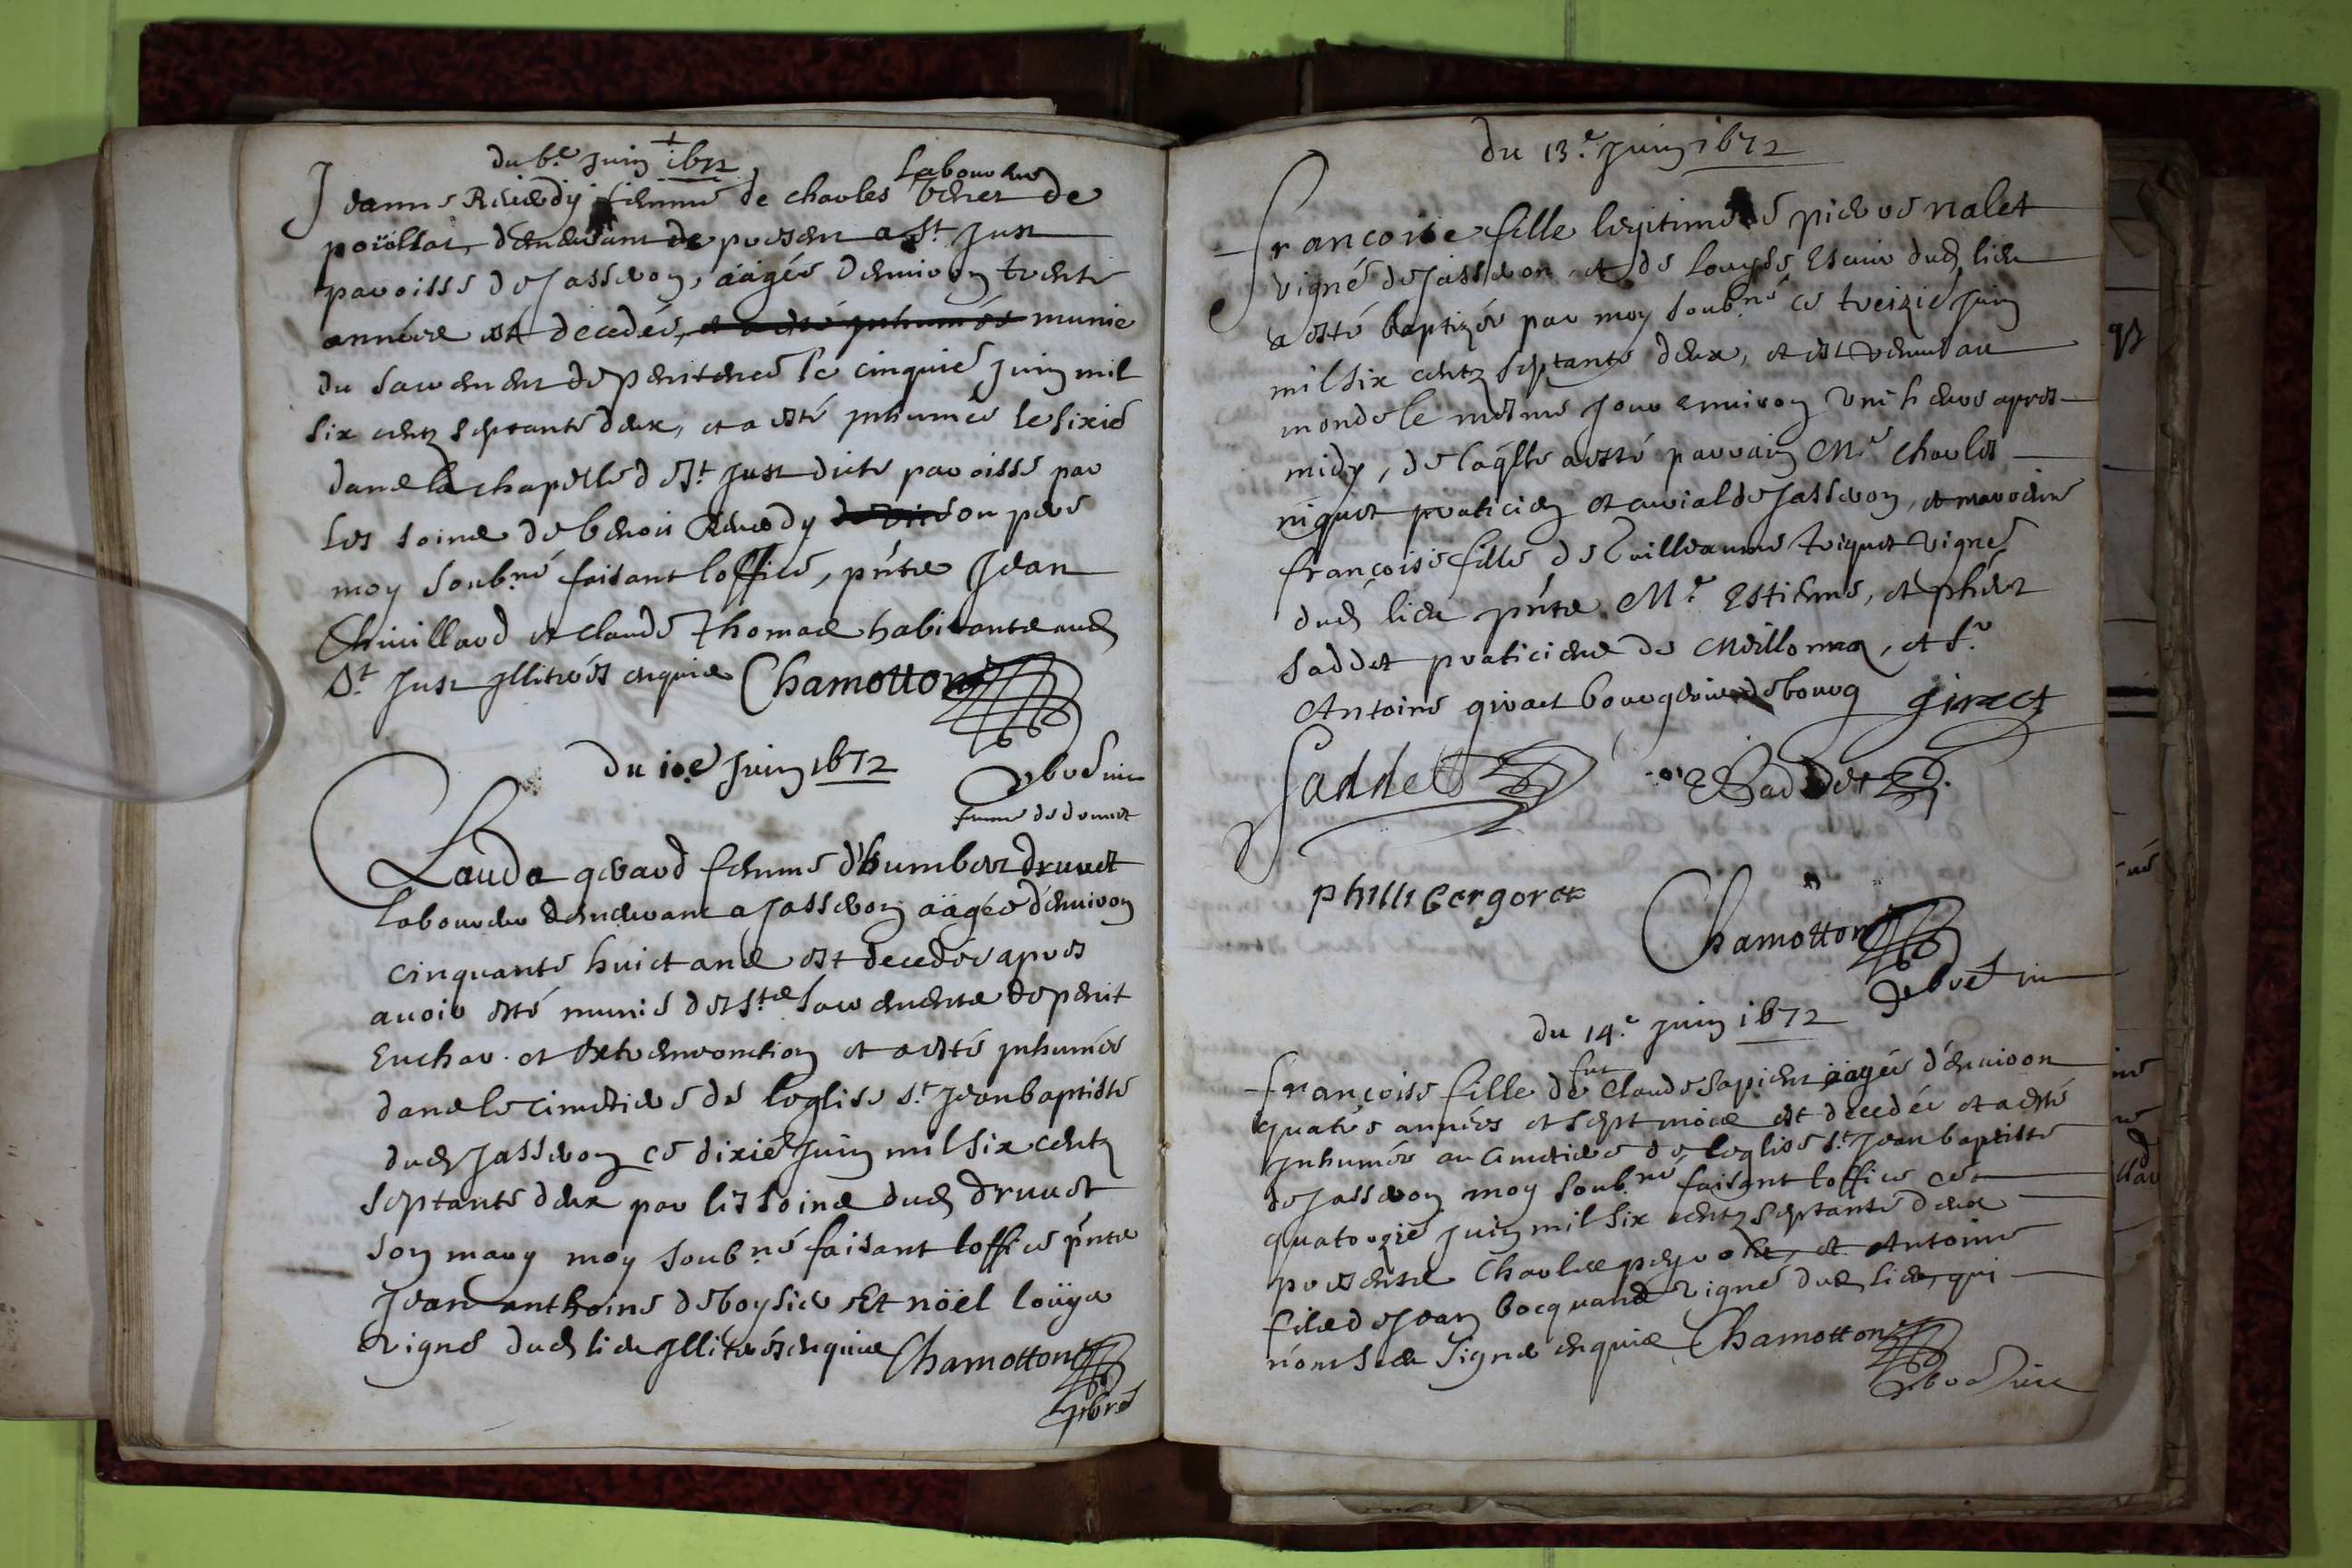 du 6.e juin 1672
Jeanne Reuedy femme de charles Laboureur de
poüillat, demeurant de present a St Just
paroisse de Jasseron, aàgée denuiron trente
années est decedée, et a esté inhumée munie
du sacrement de penitence le cinquié juin mil
six centz septante deux, et a esté inhumée le sixié
dans la chapelle de St Just dicte paroisse par
les soins de benoit Reuedy son pere
moy soubné faisant loffice, pñts Jean
Chiuillard et claude Thomas habitants aud
St Just illitrés enquis Chamotton
du 10e juin 1672
femme de druuet
Clauda girard femme d'humbert druuet
laboureur demeurant a Jasseron aàgée d'enuiron
cinquante huict ans est decedée apres
auoir esté munie des Sts sacrements de penit
Euchar. et Extremeonction et a esté inhumée
dans le cimetiere de leglise St Jean baptiste
dud Jasseron ce dixié juin mil six centz
septante deux par les soins dud druuet
son mary moy soubné faisant loffice pñts
Jean anthoine deboysier Et nöel loüys
vigné dud lieu illitrés enquis Chamotton
pbre
du 13.e juin 1672
francoise fille legitime de pierre nalet
vigné de Jasseron, et de Louyse dud lieu
a esté baptizée par moy soubné ce treizié juin
mil six centz septante deux, et est venue au
monde le mesme jour enuiron vne heure apres
midy, de laqlle a esté parrain Mr charles
niquet praticien et curial de Jasseron, et marreine
françoise fille de Guilleaume triquet vigné
dud lieu pñts Mr Estienne, et phibert
saddet praticiens de Meillonna, et Sr
Antoine giract bourgeois de bourg giract
Saddet Saddet
phillibergoret
Chamotton
du 14.e juin 1672
françoise fille de fut Claude Sapient aàgée d'enuiron
quatre années et sept mois est decedée et a esté
inhumée au cimetiere de leglise St Jean baptiste
de Jasseron moy soubné faisant loffice cet
quatorzié juin mil six centz septante deux
presents Charles et Antoine
fils de Jean bocquand vigné dud lieu, qui
n'ont sceu signe enquis Chamotton